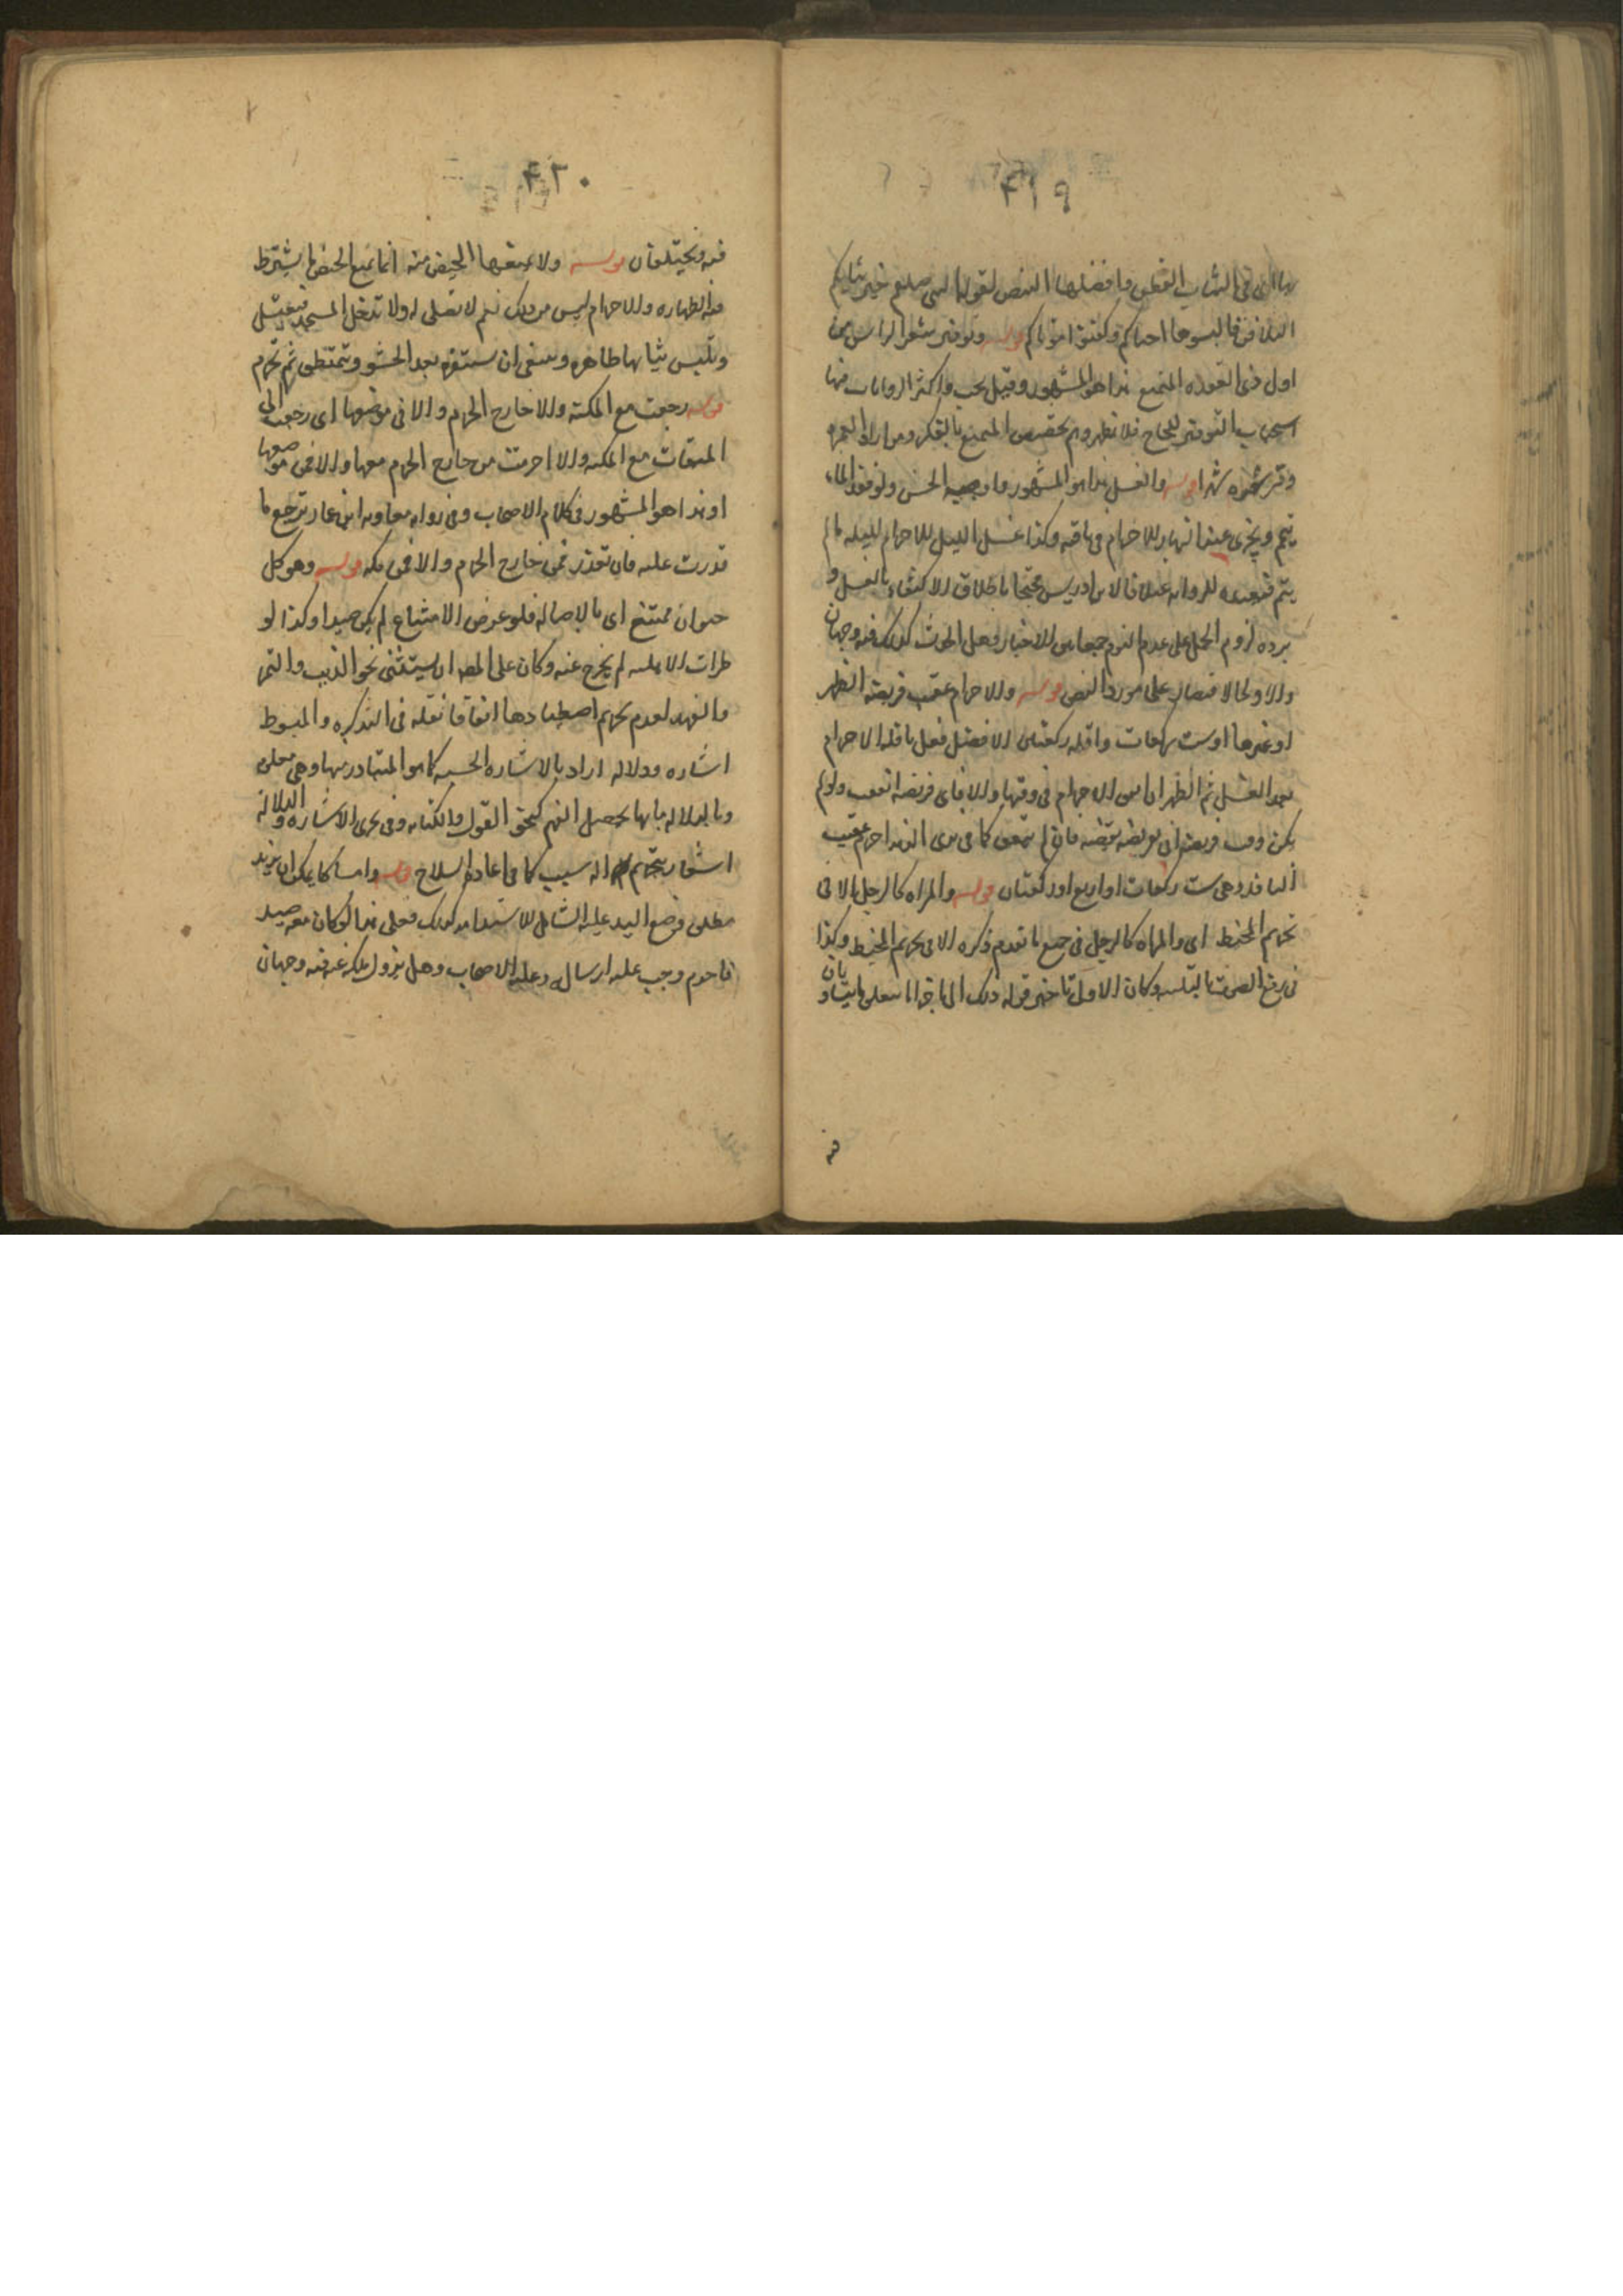 ۴۱۹
الثياب القطن وافضلها البيض لقول النبي صلعم خير ثيابكم
البيض فالبسوها احياكم وكفنوا موتاكم قوله وتوفير شعر الراس من
اول ذى القعده للمتمتع هذا هو المشهور وقيل يجب واكثر الروايات فيها
استحباب التوفير للحاج فلا يظهر وجه تخصيص المتمتع بالذكر ومن اراد العمره
وفر شعره شهرا قوله والغسل هذا هو المشهور واوجبه الحسن ولو فقد الماء
تيمم ويجزى غسل النهار للاحرام فى باقيه وكذا غسل الليل للاحرام ليله ما لم
ينم فيعيده للروايه خلافا لابن ادريس محتجا باطلاق الاكتفاء بالغسل و
يرده لزوم الحمل على عدم النوم جمعا بين الاخبار وهل الحدث كذلك فيه وجهان
والاولى الاقتصار على مورد النص قوله والاحرام عقيب فريضه الظهر
او غيرها او ست ركعات واقله ركعتان الافضل فعل نافله الاحرام
بعد الغسل ثم الظهر ان كان الاحرام فى وقتها والا فاى فريضه اتفقت ولو لم
يكن وقت فريضه فان لم يتفق كما فى احرم عقيب
النافله وهى ست ركعات او اربع او ركعتان قوله والمراه كالرجل الا فى
تحريم المخيط اى والمراه كالرجل فى جميع ما تقدم ذكره الا فى تحريم المخيط وكذا
فى رفع الصوت بالتلبيه وكان الاولى تاخير قوله ذلك الى
فيه
۴۲۰
فيه ويختلفان قوله ولا يمنعها الحيض منه انما يمنع الحيض ما يشترط
فيه الطهاره والاحرام ليس من ذلك نعم لا تصلى له ولا تدخل المسجد فتغتسل
وتلبس ثيابها طاهره وينبغى ان تستثفر بعد الحشو وتتمنطق ثم تحرم
قوله رجعت مع المكنه والا خارج الحرم والا فى موضعها اى رجعت الى
الميقات مع المكنه والا احرمت من خارج الحرم معها والا فمن موضعها
او هذا هو المشهور فى كلام الاصحاب وفى روايه معاويه ابن عمار ترجع ما
قدرت عليه فان تعذر فمن خارج الحرم والا فمن مكه قوله وهو كل
حيوان ممتنع اى بالاصاله فلو عرض الامتناع لم يكن صيدا وكذا لو
طرات الاهليه لم يخرج عنه وكان على المصه ان يستثنى نحو الذيب والنمر
والفهد لعدم تحريم اصطيادها اتفاقا نقله فى التذكره والمبسوط
اشاره ودلاله اراد بالاشاره الحسيه كما هو المتبادر منها وهى معلى
وبالدلاله ما بها يحصل الفهم كنحو القول والكتابه وفى تحرى الاشاره والدلاله
اشعار بتحريم اله سبب كما فى اعاده السلاح قوله وامساكا يمكن ان يريد
مطلق وضع اليد عليه الشامل للاستدامه كذلك فعلى هذا لو كان معه صيد
فاحرم وجب عليه ارساله وعليه الاصحاب وهل يزول ملكه عنه فيه وجهان